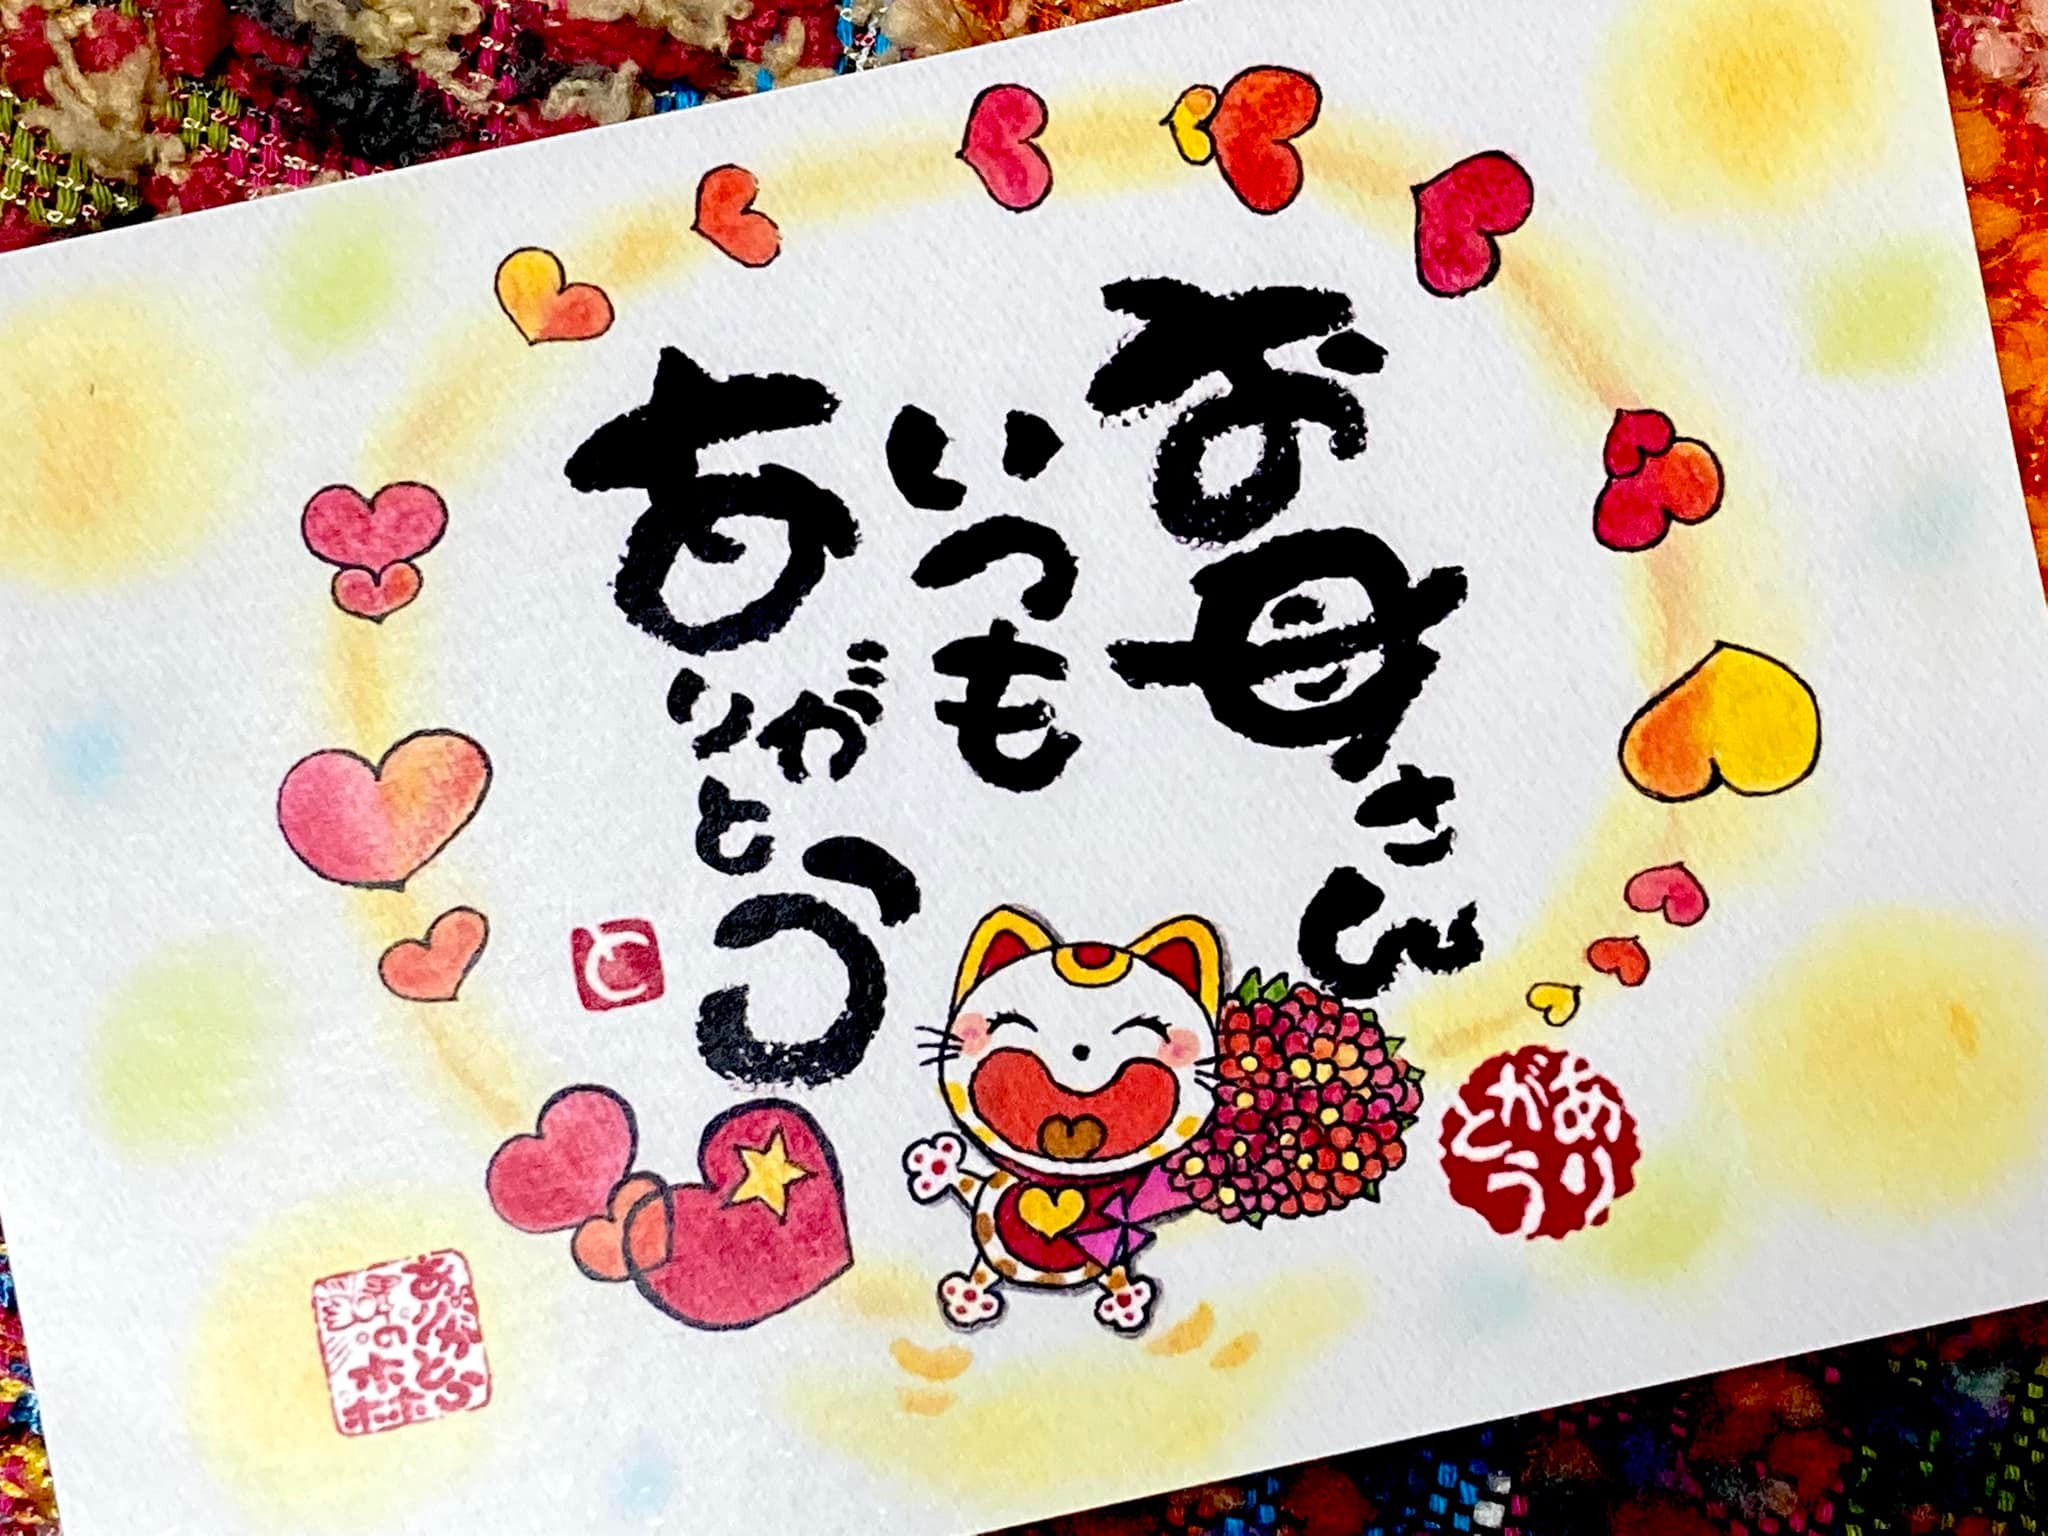 お母さん
いつも
ありがとう
と
ありがとう
ありがとう
の木